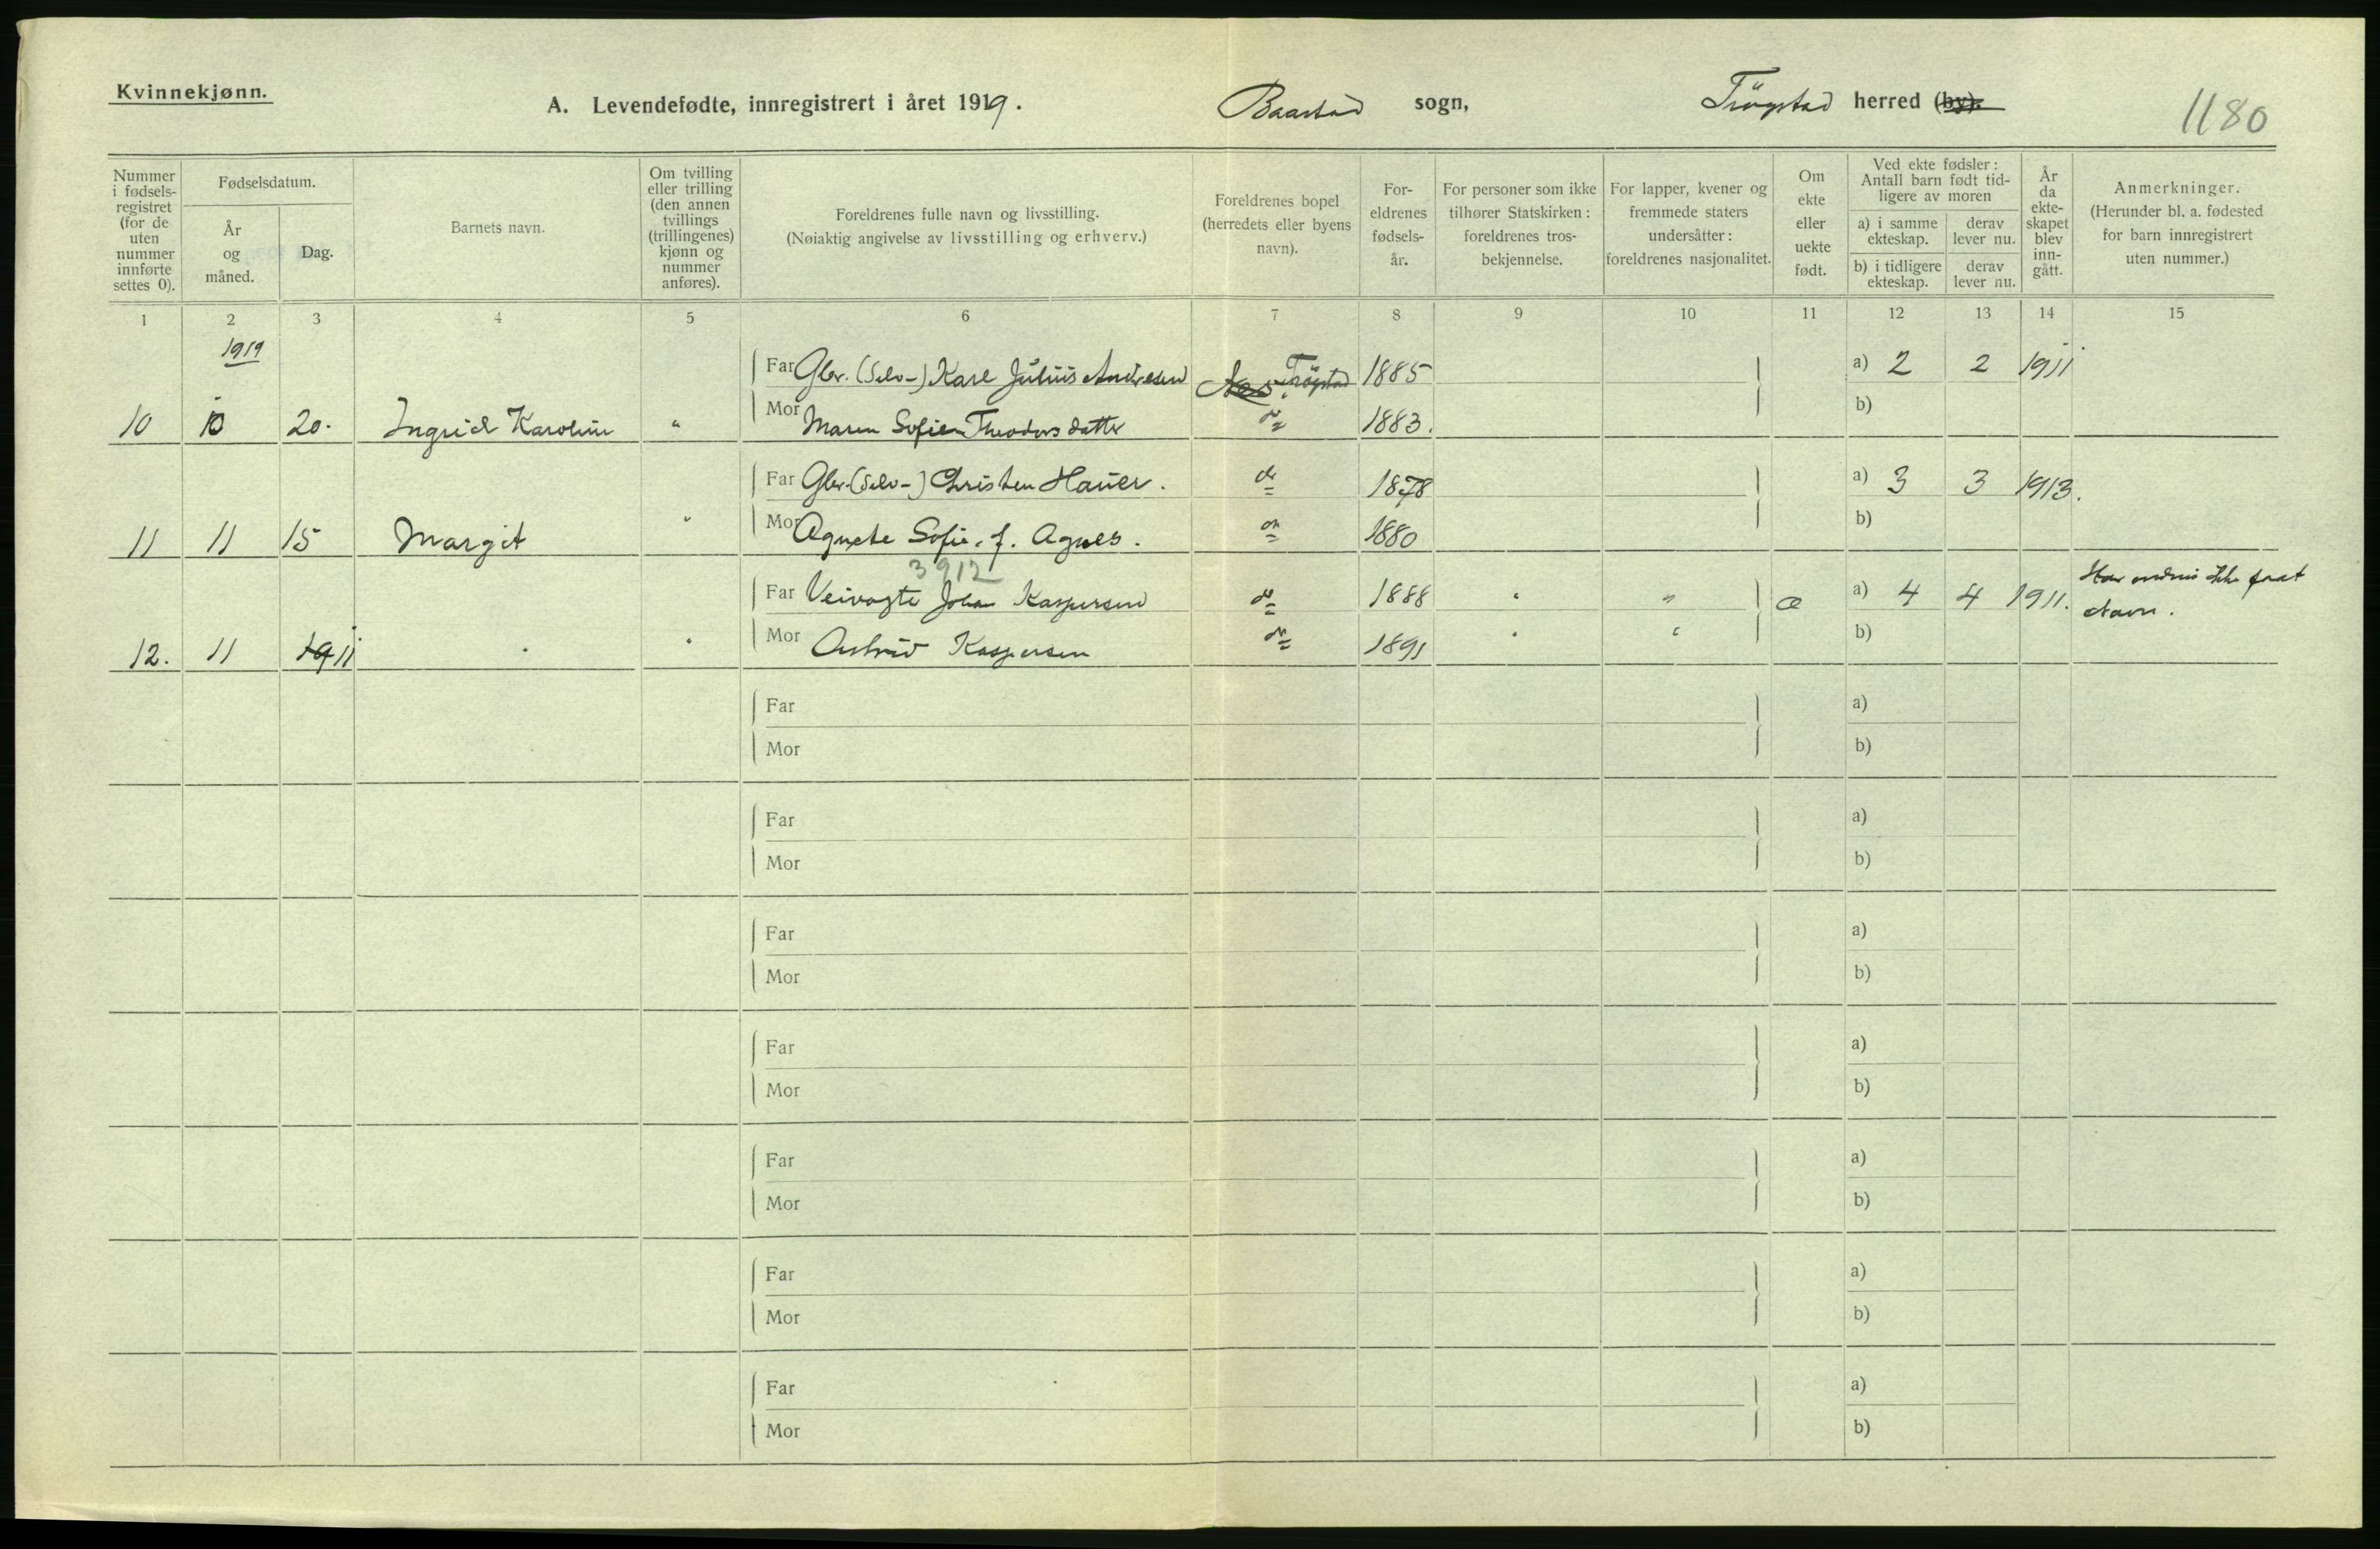 Kvinnekjønn.
A. Levendefødte, innregistrert i året 1919. Baastad sogn, Trögstad herred (by).
1180
Nummer i fødsels-registret (for de uten nummer innførte settes 0).
Fødselsdatum.
År og måned.
Dag.
Barnets navn.
Om tvilling eller trilling (den annen tvillings (trillingenes) kjønn og nummer anføres).
Foreldrenes fulle navn og livsstilling.
(Nøiaktig angivelse av livsstilling og erhverv.)
Foreldrenes bopel (herredets eller byens navn).
For-eldrenes fødsels-år.
For personer som ikke tilhører Statskirken: foreldrenes tros-bekjennelse.
For lapper, kvener og fremmede staters undersåtter: foreldrenes nasjonalitet.
Om ekte eller uekte født.
Ved ekte fødsler: Antall barn født tid-ligere av moren
a) i samme ekteskap.
derav lever nu.
b) i tidligere ekteskap.
derav lever nu.
År da ekte-skapet blev inn-gått.
Anmerkninger.
(Herunder bl. a. fødested for barn innregistrert uten nummer.)
1 2 3 4 5 6 7 8 9 10 11 12 13 14 15
1919
Far Gbr. (Selv-) Karl Julius Andresen Trögstad 1885 a) 2 2 1911
10 10 20. Ingrid Karoline " Mor Maren Sofie Theodorsdatter do 1883. b)
Far Gbr. (Selv-) Christen Hauer. do 1878 a) 3 3 1913.
11 11 15 Margit " Mor Agnete Sofie, f. Agnes. do 1880 b)
3912
Far Veivogte Johan Kaspersen do 1888 " " a) 4 4 1911. Har endnu ikke faat Navn.
12. 11 19 11 " " Mor Astrid Kaspersen do 1891 " " b)
Far a)
Mor b)
Far a)
Mor b)
Far a)
Mor b)
Far a)
Mor b)
Far a)
Mor b)
Far a)
Mor b)
Far a)
Mor b)